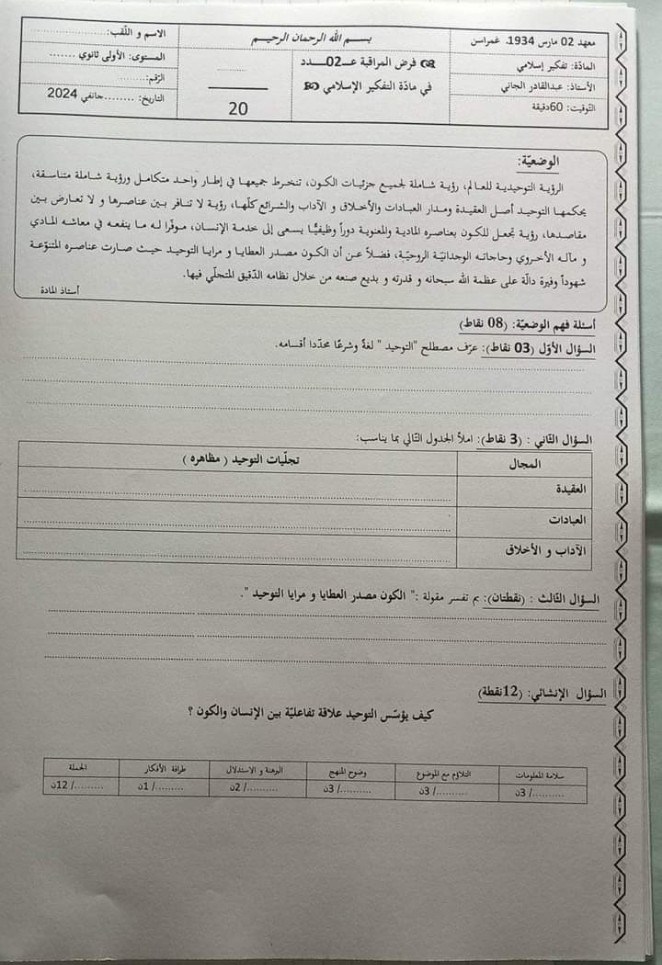 معهد 02 مارس 1934. غمراسن
بسم الله الرحمان الرحيم
الاسم و اللّقب:
المادّة: تفكير إسلامي
فرض المراقبة عـــ02ــــدد
المستوى: الأولى ثانوي .......
الأستاذ: عبدالقادر الجاني
في مادّة التفكير الإسلامي
الرّقم:.......
التّوقيت: 60دقيقة
20
التاريخ: ........جانفي 2024
الوضعيّة:
الرؤية التوحيدية للعالم، رؤية شاملة لجميع جزئيات الكون، تنخرط جميعها في إطار واحد متكامل ورؤية شاملة متناسقة،
يحكمها التوحيد أصل العقيدة ومدار العبادات والأخلاق و الآداب والشرائع كلّها، رؤية لا تنافر بين عناصرها و لا تعارض بين
مقاصدها، رؤية تجعل للكون بعناصره المادية والمعنوية دوراً وظيفيًّا يسعى إلى خدمة الإنسان، موفّرا له ما ينفعه في معاشه المادي
و مآله الأخروي وحاجاته الوجدانيّة الروحيّة، فضلاً عن أن الكون مصدر العطايا و مرايا التوحيد حيث صارت عناصره المتنوّعة
شهوداً وفيرة دالّة على عظمة الله سبحانه و قدرته و بديع صنعه من خلال نظامه الدّقيق المتجلّي فيها.
أستاذ المادة
أسئلة فهم الوضعيّة: (08 نقاط)
السؤال الأوّل (03 نقاط): عرّف مصطلح "التوحيد " لغةً وشرعًا محدّدا أقسامه.
السؤال الثّاني : (3 نقاط): املأ الجدول التّالي بما يناسب:
المجال
تجلّيات التوحيد ( مظاهره )
العقيدة
العبادات
الآداب و الأخلاق
السؤال الثّالث : (نقطتان): بم تفسر مقولة :" الكون مصدر العطايا و مرايا التوحيد ".
السؤال الإنشائي: (12نقطة)
كيف يؤسّس التوحيد علاقة تفاعليّة بين الإنسان والكون ؟
سلامة المعلومات
التلاؤم مع الموضوع
وضوح المنهج
البرهنة و الاستدلال
طرافة الأفكار
الجملة
........../ 3ن
........../ 3ن
........../ 3ن
........../ 2ن
........../ 1ن
........../ 12ن